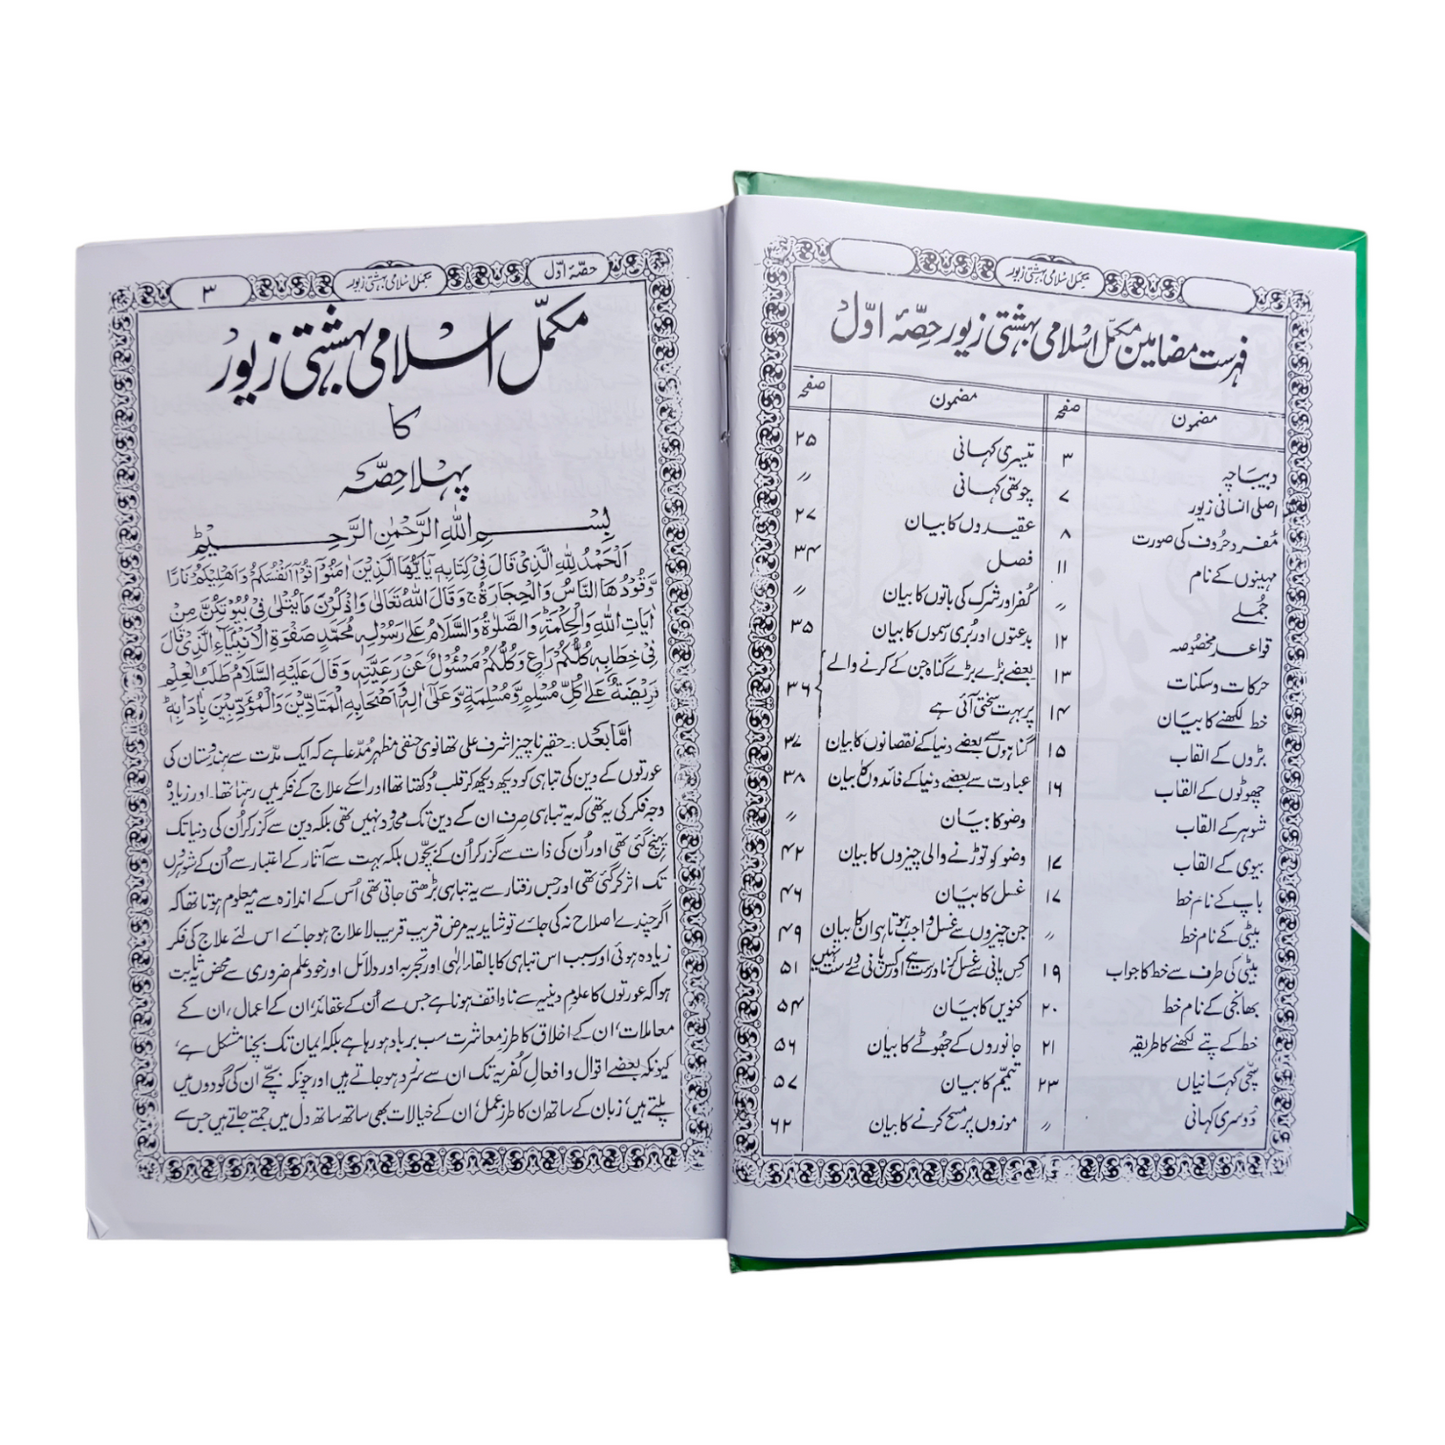 مکمل اسلامی بہشتی زیور
فہرست مضامین مکمل اسلامی بہشتی زیور حصّۂ اوّل
مضمون صفحہ مضمون صفحہ
دیباچہ ۳ تیسری کہانی ۲۵
اصلی انسانی زیور ۷ چوتھی کہانی 〃
مفرد حروف کی صورت ۸ عقیدوں کا بیان ۲۷
مہینوں کے نام ۱۱ فصل ۳۴
جُملے 〃 کفر اور شرک کی باتوں کا بیان 〃
قواعد مخصوصہ ۱۲ بدعتوں اور بُری رسموں کا بیان ۳۵
حرکات و سکنات ۱۳ بعضے بڑے بڑے گناہ جن کے کرنے والے
خط لکھنے کا بیان ۱۴ پر بہت سختی آئی ہے ۳۶
بڑوں کے القاب ۱۵ گناہوں سے بعضے دنیا کے نقصانوں کا بیان ۳۷
چھوٹوں کے القاب ۱۶ عبادت سے بعضے دنیا کے فائدوں کا بیان ۳۸
شوہر کے القاب وضو کا بیان 〃
بیوی کے القاب ۱۷ وضو کو توڑنے والی چیزوں کا بیان ۴۲
باپ کے نام خط ۱۷ غسل کا بیان ۴۶
بیٹی کے نام خط 〃 جن چیزوں سے غسل واجب ہوتا ہو ان کا بیان ۴۹
بیٹی کی طرف سے خط کا جواب ۱۹ کس پانی سے غسل کرنا درست ہے اور کس پانی سے درست نہیں ۵۱
بھانجی کے نام خط ۲۰ کنویں کا بیان ۵۴
خط کے پتے لکھنے کا طریقہ ۲۱ جانوروں کے جھوٹے کا بیان ۵۶
سچّی کہانیاں ۲۳ تیمّم کا بیان ۵۷
دُوسری کہانی 〃 موزوں پر مسح کرنے کا بیان ۶۲
حصّۂ اوّل مکمل اسلامی بہشتی زیور ۳
مکمّل اسلامی بہشتی زیور
کا
پہلا حِصّہ
بِسْمِ اللّٰہِ الرَّحْمٰنِ الرَّحِیْمِ
اَلْحَمْدُ لِلّٰہِ الَّذِیْ قَالَ فِیْ کِتَابِہٖ یٰاَیُّھَا الَّذِیْنَ اٰمَنُوْا قُوْا اَنْفُسَکُمْ وَاَھْلِیْکُمْ نَارًا
وَّقُوْدُھَا النَّاسُ وَالْحِجَارَۃُ وَقَالَ اللّٰہُ تَعَالٰی وَاذْکُرْنَ مَا یُتْلٰی فِیْ بُیُوْتِکُنَّ مِنْ
اٰیَاتِ اللّٰہِ وَالْحِکْمَۃِ وَالصَّلٰوۃُ وَالسَّلَامُ عَلٰی رَسُوْلِہٖ مُحَمَّدٍ صَفْوَۃِ الْاَنْبِیَآءِ الَّذِیْ قَالَ
فِیْ خِطَابِہٖ کُلُّکُمْ رَاعٍ وَکُلُّکُمْ مَسْئُوْلٌ عَنْ رَعِیَّتِہٖ وَقَالَ عَلَیْہِ السَّلَامُ طَلَبُ الْعِلْمِ
فَرِیْضَۃٌ عَلٰی کُلِّ مُسْلِمٍ وَّمُسْلِمَۃٍ وَّعَلٰی اٰلِہٖ وَاَصْحَابِہِ الْمُتَادِّبِیْنَ وَالْمُؤَدِّبِیْنَ بِاٰدَابِہٖ
امّا بعد:۔ حقیر ناچیز اشرف علی تھانوی حنفی مظہر مُدّعا ہے کہ ایک مدّت سے ہندوستان کی
عورتوں کے دین کی تباہی کو دیکھ دیکھ کر قلب دُکھتا تھا اور اسکے علاج کے فکر میں رہتا تھا۔ اور زیادہ
وجہ فکر کی یہ تھی کہ یہ تباہی صرف ان کے دین تک محدود نہیں تھی بلکہ دین سے گزر کر اُن کی دنیا تک
پہنچ گئی تھی اور اُن کی ذات سے گزر کر اُن کے بچّوں بلکہ بہت سے آثار کے اعتبار سے اُن کے شوہروں
تک اثر کر گئی تھی اور جس رفتار سے یہ تباہی بڑھتی جاتی تھی اُس کے اندازہ سے یہ معلوم ہوتا تھا کہ
اگر چندے اصلاح نہ کی جائے تو شاید یہ مرض قریب قریب لا علاج ہو جائے اس لئے علاج کی فکر
زیادہ ہوئی اور سبب اس تباہی کا بالقاء الٰہی اور تجربہ اور دلائل اور خود علم ضروری سے محض یہ ثابت
ہوا کہ عورتوں کا علوم دینیہ سے ناواقف ہونا ہے جس سے اُن کے عقائد، ان کے اعمال، ان کے
معاملات، ان کے اخلاق کا طرز معاشرت سب برباد ہو رہا ہے بلکہ ایمان تک بچنا مشکل ہے،
کیونکہ بعضے اقوال و افعال کُفریہ تک ان سے سرزد ہو جاتے ہیں اور چونکہ بچّے ان کی گودوں میں
پلتے ہیں، زبان کے ساتھ ان کا طرز عمل، ان کے خیالات بھی ساتھ ساتھ دل میں جمتے جاتے ہیں جس سے